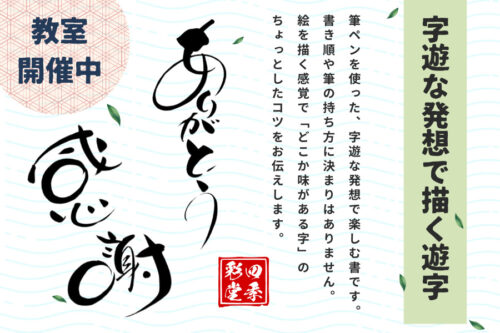 字遊な発想で描く遊字
筆ペンを使った、字遊な発想で楽しむ書です。
書き順や筆の持ち方に決まりはありません。
絵を描く感覚で「どこか味がある字」の
ちょっとしたコツをお伝えします。
教室
開催中
ありがとう
感謝
四季
彩堂